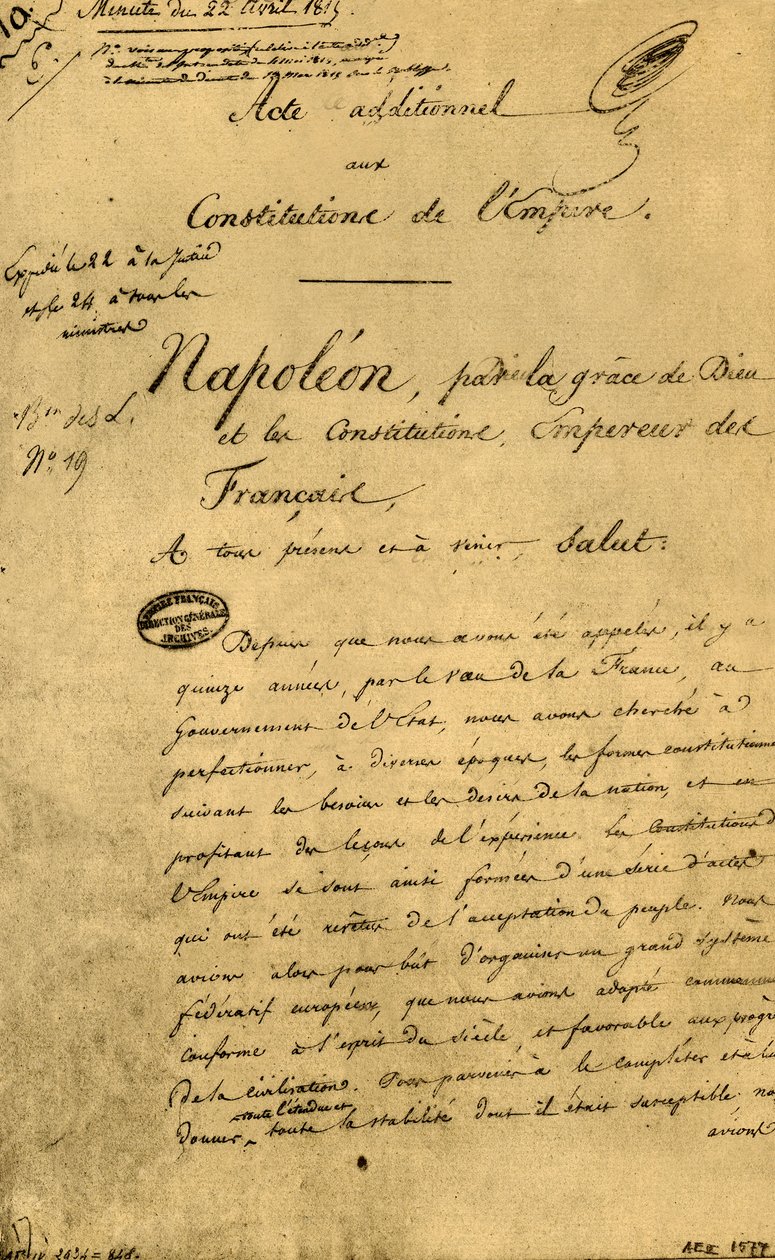 Minute du 22 Avril 1815
Acte additionnel
aux
Constitutions de l'Empire.
Expédié le 22 à la Justice
et le 24 à tous les
ministres
Bin des L.
No 19
Napoléon, par la grâce de Dieu
et les Constitutions, Empereur des
Français,
A tous présens et à venir, Salut:
EMPIRE FRANÇAIS
DIRECTION GÉNÉRALE
DES
ARCHIVES.
Depuis que nous avons été appelés, il y a
quinze années, par le vœu de la France, au
Gouvernement de l'Etat, nous avons cherché à
perfectionner, à diverses époques, les formes constitutionne
suivant les besoins et les desirs de la nation, et en
profitant des leçons de l'expérience. Les Constitutions d
l'Empire se sont ainsi formées d'une série d'actes
qui ont été revêtus de l'acceptation du peuple. Nous
avions alors pour but d'organiser un grand système
fédératif européen, que nous avions adopté comme
conforme à l'esprit du siècle, et favorable aux progrè
de la civilisation. Pour parvenir à le compléter et à lui
toute l'étendue et
donner toute la stabilité dont il était susceptible no
avions
2934 = 848.
AE II 1577